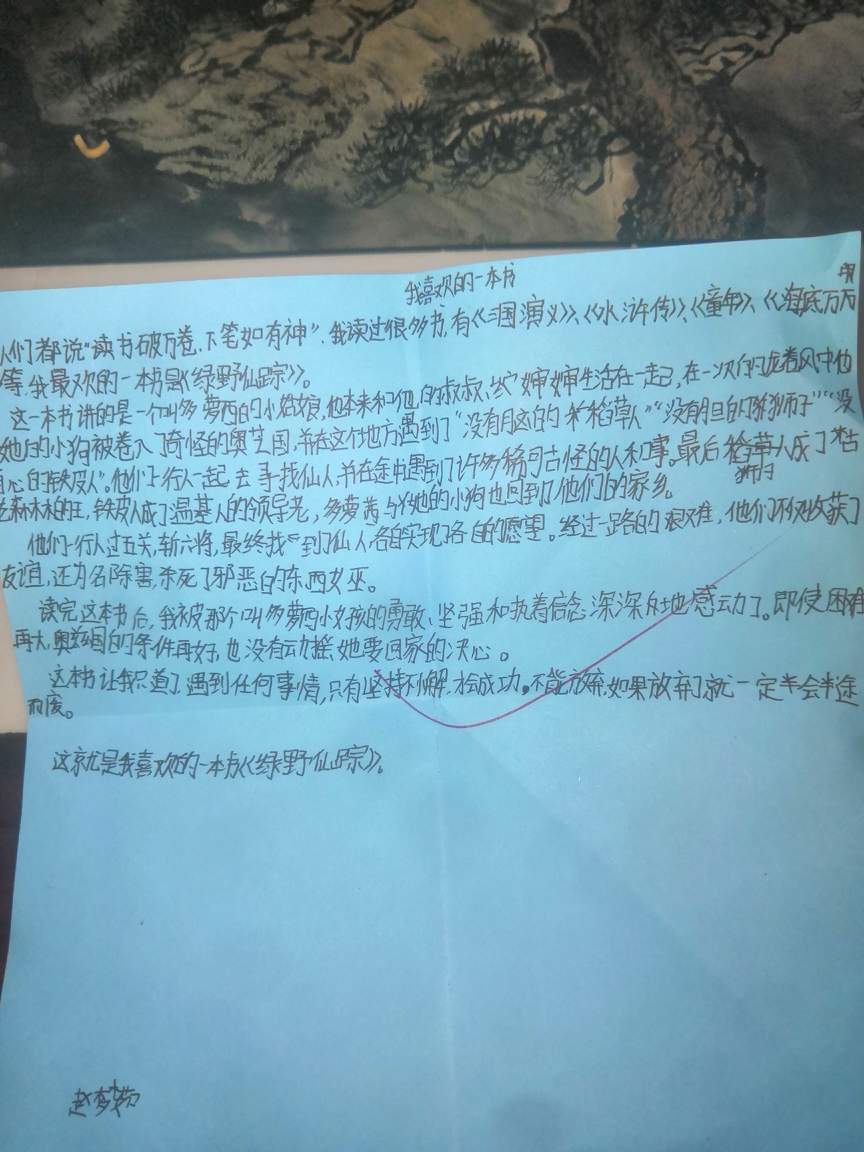 我喜欢的一本书
人们都说“读书破万卷，下笔如有神”，我读过很多书，有《三国演义》、《水浒传》、《童年》、《海底万
等，我最欢的一本书是《绿野仙踪》。
这一本书讲的是一个叫多萝西的小姑娘，他本来和他的叔叔、婶婶生活在一起，在一次的龙卷风中他
她的小狗被卷入了奇怪的奥芝国，并在这个地方遇到了“没有脑的稻草人”“没有胆的狮子”“没
心的铁皮人”。他们一行人一起去寻找仙人，并在途中遇到了许多稀奇古怪的人和事。最后稻草人成了
狮子
森林的王，铁皮人成了温基人的领导者，多萝茜与她的小狗也回到了他们的家乡。
他们一行人过五关，斩六将，最终找到了仙人各自实现了各自的愿望。经过一路的艰难，他们不仅收获了
友谊，还为名除害，杀死了邪恶的东西女巫。
读完这本书后，我被那个叫多萝西小女孩的勇敢、坚强和执着信念深深地感动了。即使困难
再大，奥兹国的条件再好，也没有动摇她要回家的决心。
这本书让我知道了，遇到任何事情，只有坚持不懈，才会成功。不能放弃，如果放弃了就一定会半途
而废。
这就是我喜欢的一本书《绿野仙踪》。